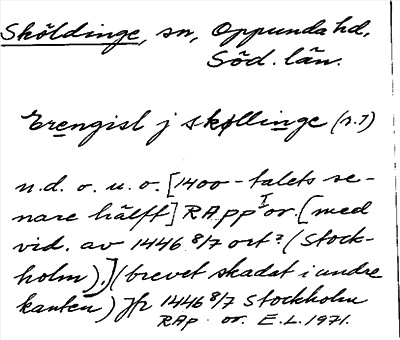 Sköldinge, sn, Oppunda hd,
Söd. län.
Erengisl j skøllinge (s. 1)
n.d. o. u. o. [1400-talets se-
nare hälft] RApp I or. [med
vid. av 1446 8/7 ort? (Stock-
holm).] (brevet skadat i undre
kanten) Jfr 1446 8/7 Stockholm
RAp. or. E.L. 1971.